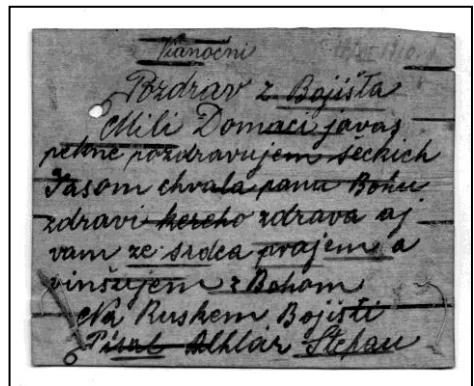 Vianočni
Pozdrav z Bojišťa
Mili Domaci ja vas
pekne pozdravujem šeckich
Ja som chvala panu Bohu
zdravi kereho zdrava aj
vam ze srdca prajem a
vinšujem z Bohom
Na Ruskem Bojišti
Pisal Alhlár Štepan